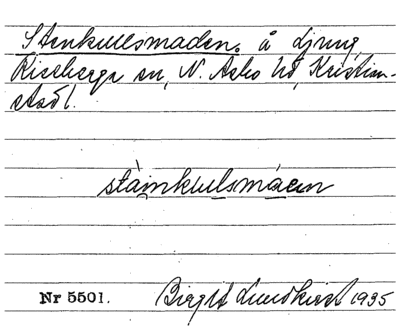 Stenkullsmaden. å Ljung,
Riseberga sn, N. Åsbo hd, Kristian-
stads l.
stàinkulsmáen
Nr 5501. Birgit Lundkvist 1935